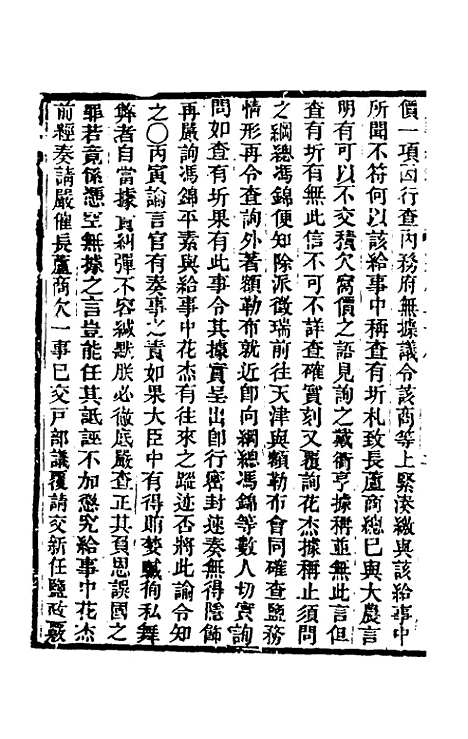 價一項因行查內務府無據議令該商等上緊湊繳與該給事中
所聞不符何以該給事中稱查有圻札致長蘆商總已與大農言
明有可以不交積欠窩價之語見詢之戴衢亨據稱並無此言但
查有圻有無此信不可不詳查確實刻又覆詢花杰據稱止須問
之綱總馮錦便知除派徵瑞前往天津與額勒布會同確查鹽務
情形再令查詢外著額勒布就近卽向綱總馮錦等數人切實詢
問如查有圻果有此事令其據實呈出卽行密封速奏無得隱飾
再嚴詢馮錦平素與給事中花杰有往來之蹤迹否將此諭令知
之〇丙寅諭言官有奏事之責如果大臣中有得賄婪贓徇私舞
弊者自當據實糾彈不容緘默朕必徹底嚴查正其負恩誤國之
罪若竟係憑空無據之言豈能任其詆誣不加懲究給事中花杰
前經奏請嚴催長蘆商欠一事已交戶部議覆請交新任鹽政覈